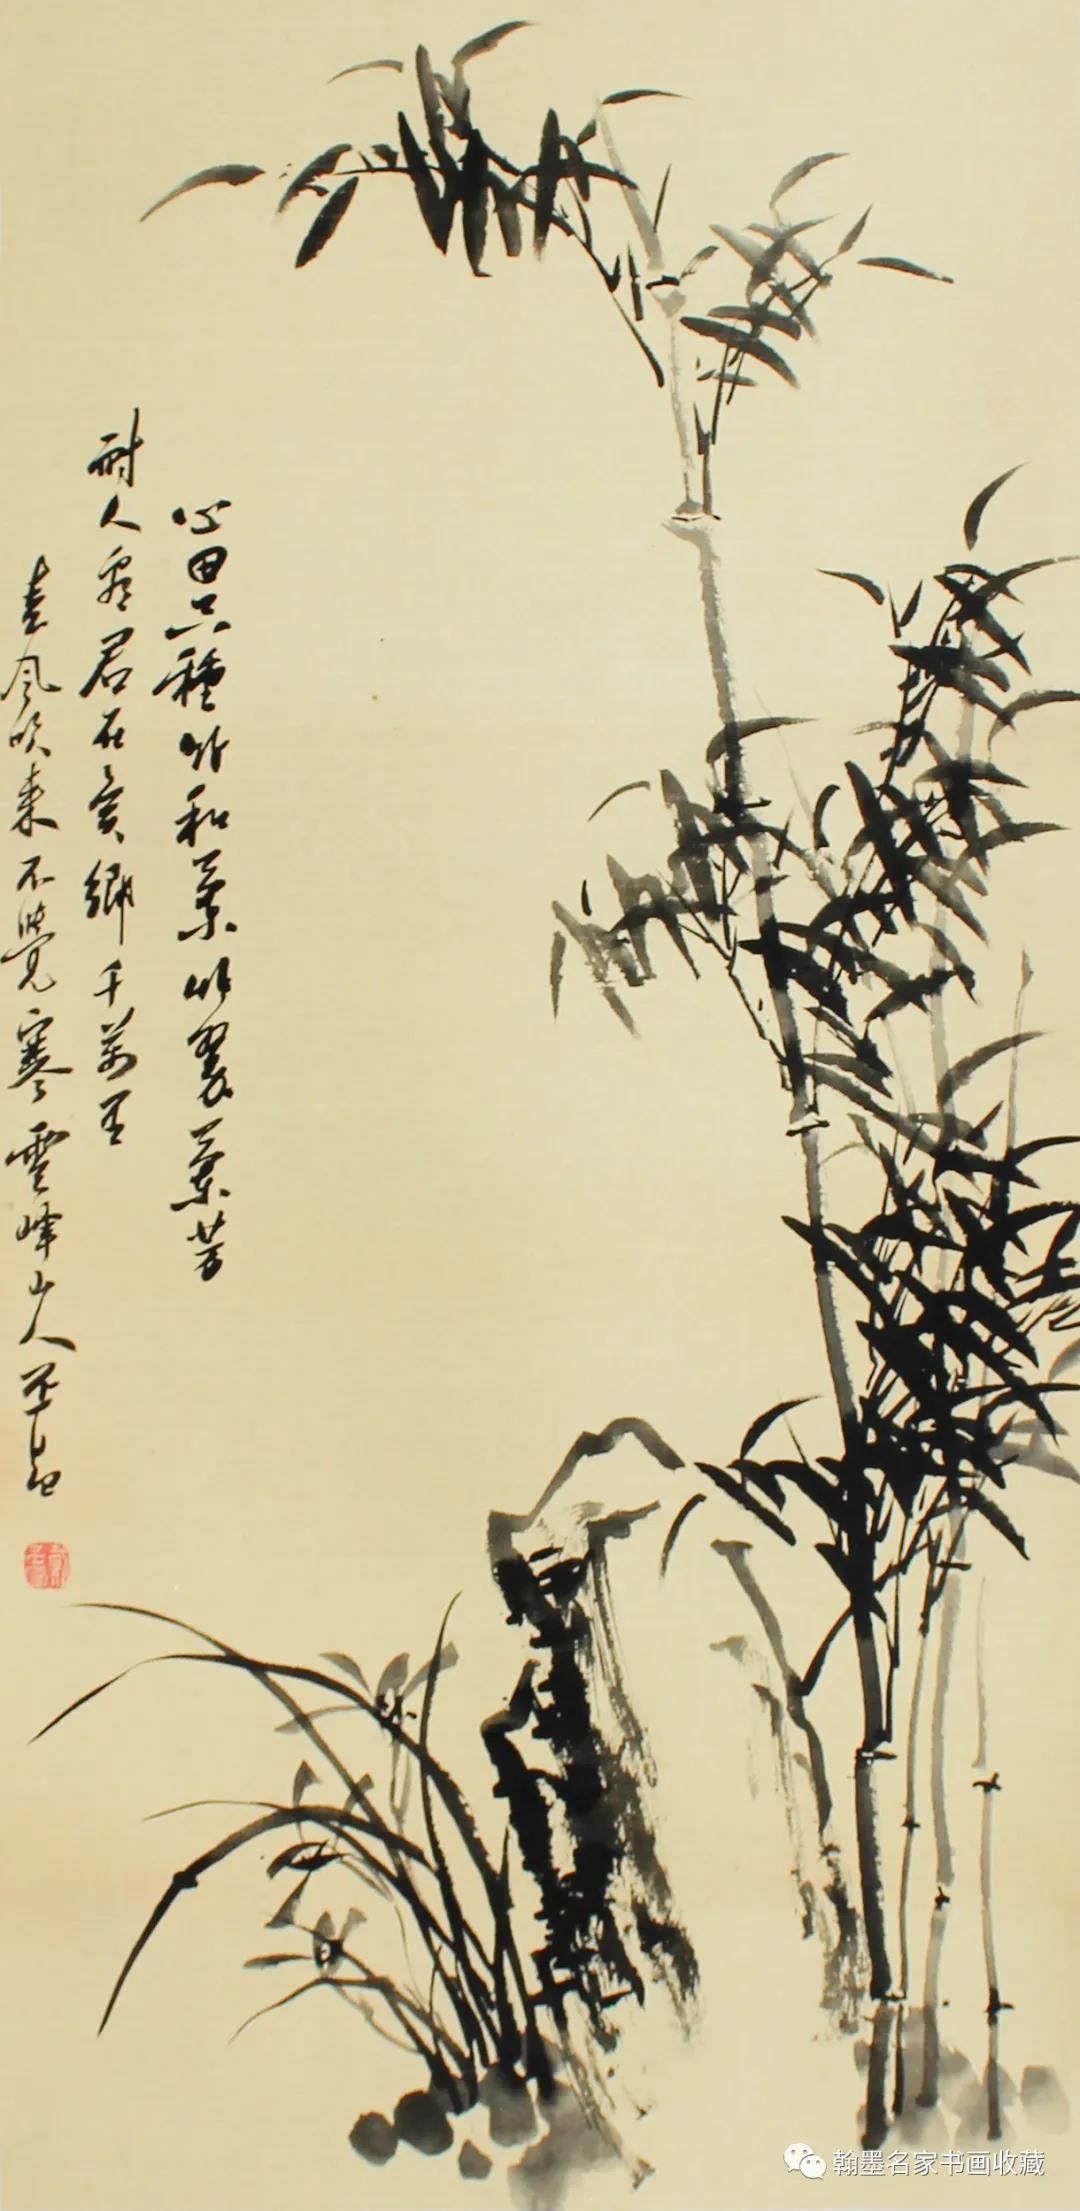 心田只種竹和蘭竹翠蘭芳
耐人看君在異鄉千萬里
春風吹來不覺寒雲峰山人
翰墨名家书画收藏